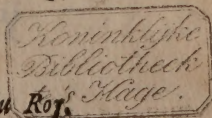 Koninklijke
Bibliotheek
te 's Hage.
u Roy,